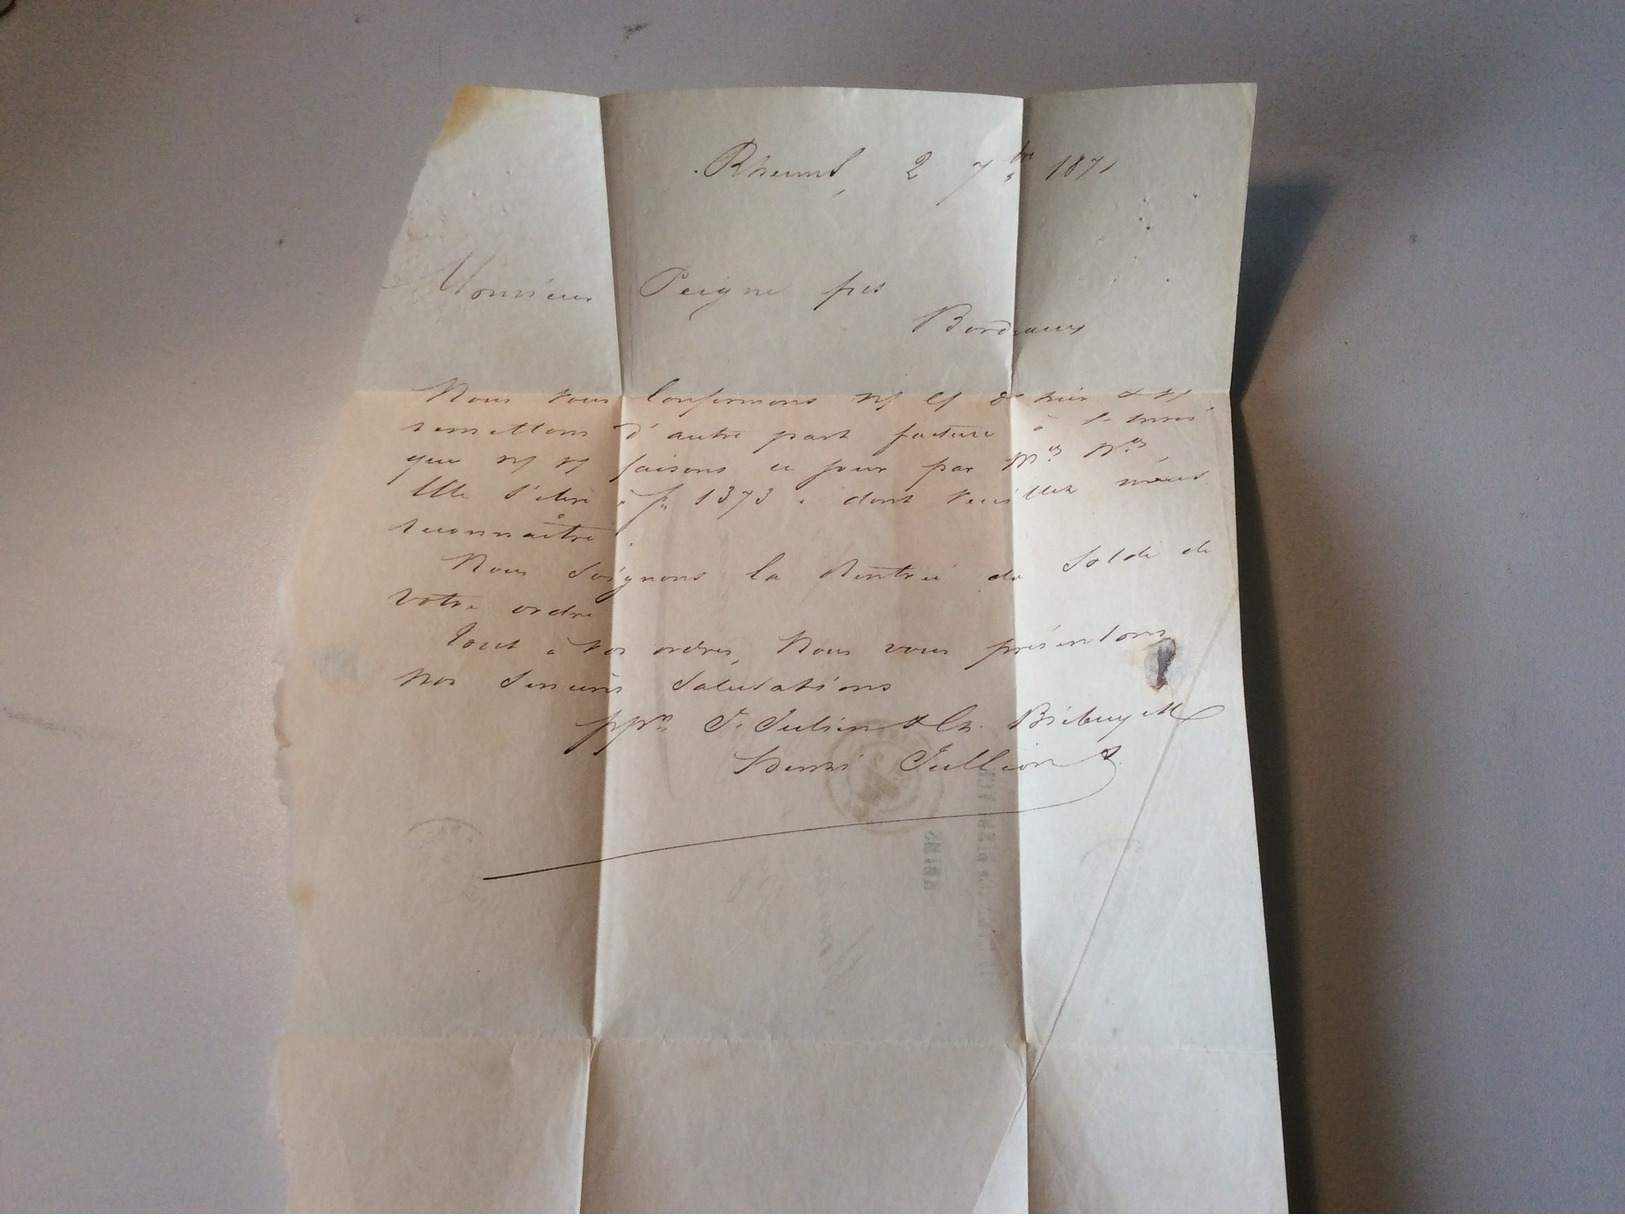 Rheims, 2 7bre 1871
Monsieur Peigne
Bordeaux
Nous vous confirmons n/ d'hier & v/
remettons d'autre part facture à l'envoi
que n/ v/ faisons ce jour par
Elle s'élève à f. 1373. dont veuillez
reconnaître.
Nous soignons la Rentrée du Solde de
votre ordre
Tout à vos ordres, Nous vous présentons
nos sincères salutations
ppon J. Julien & Ch. Biebuyck
Henri Jullion
REIMS